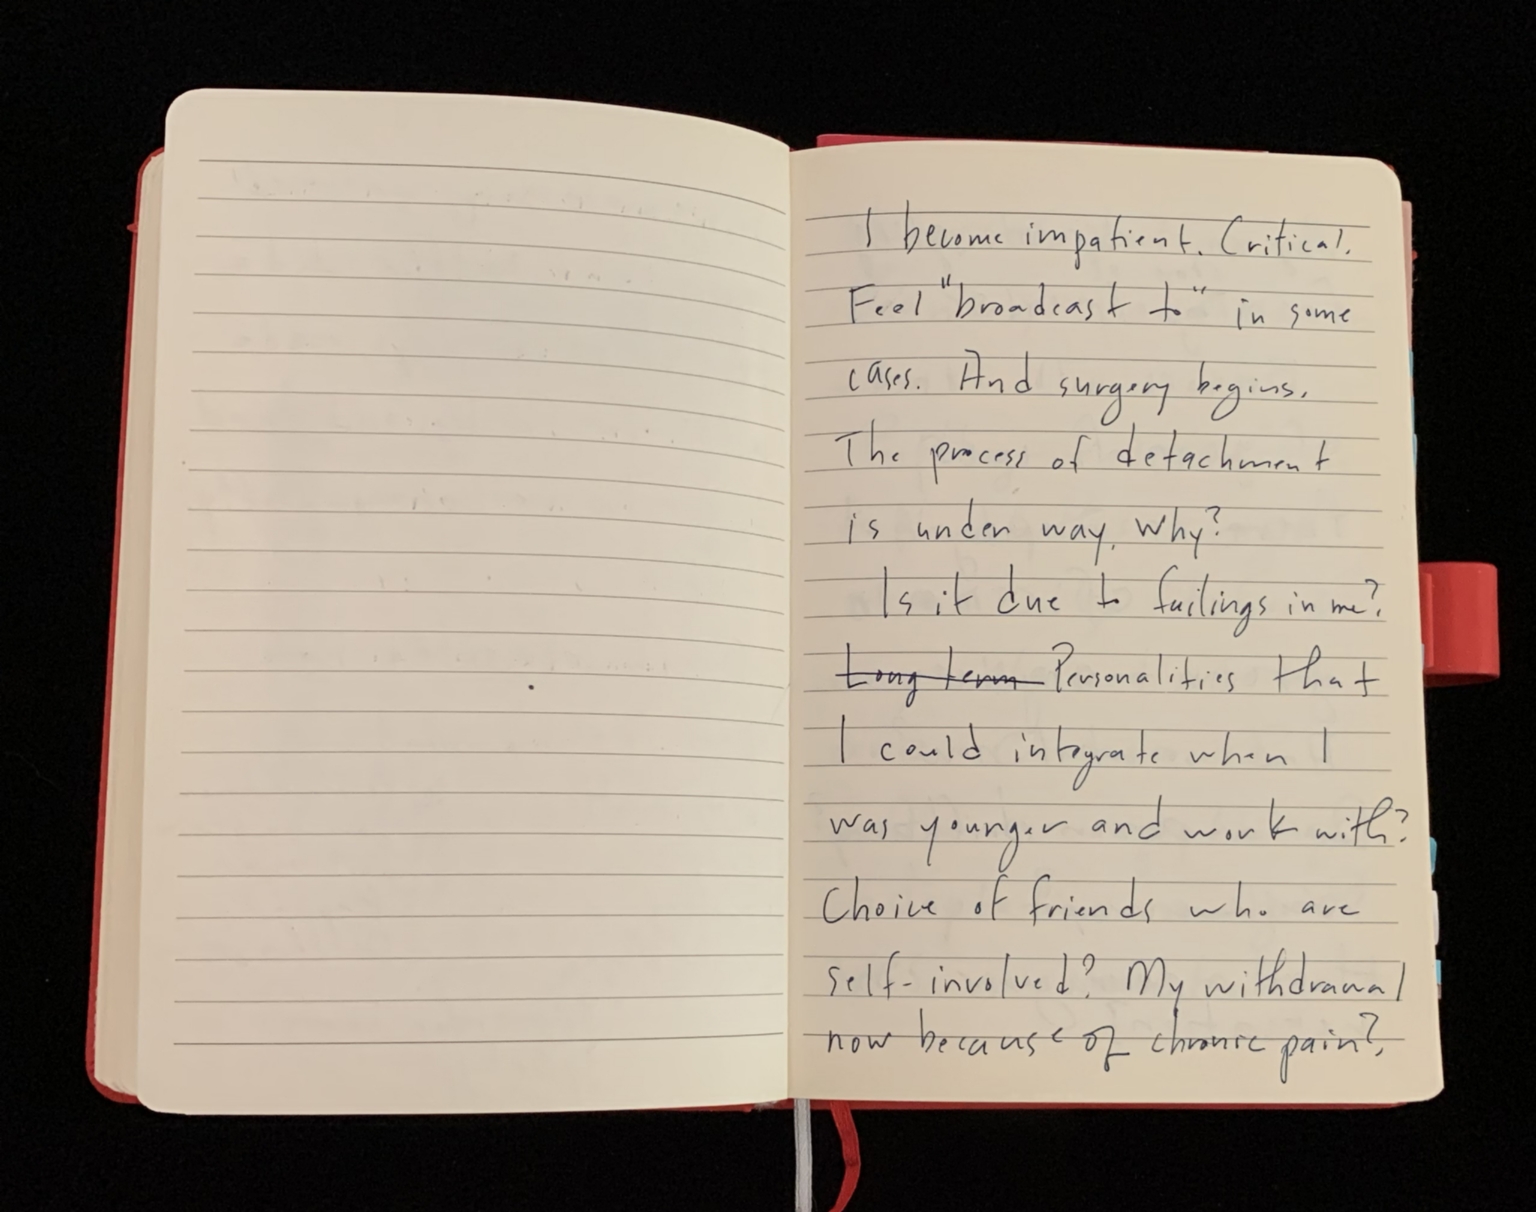 I become impatient. Critical.
Feel "broadcast to" in some
cases. And surgery begins.
The process of detachment
is under way. Why?
Is it due to failings in me?
Long term Personalities that
I could integrate when I
was younger and work with?
Choice of friends who are
self-involved? My withdrawal
now because of chronic pain?